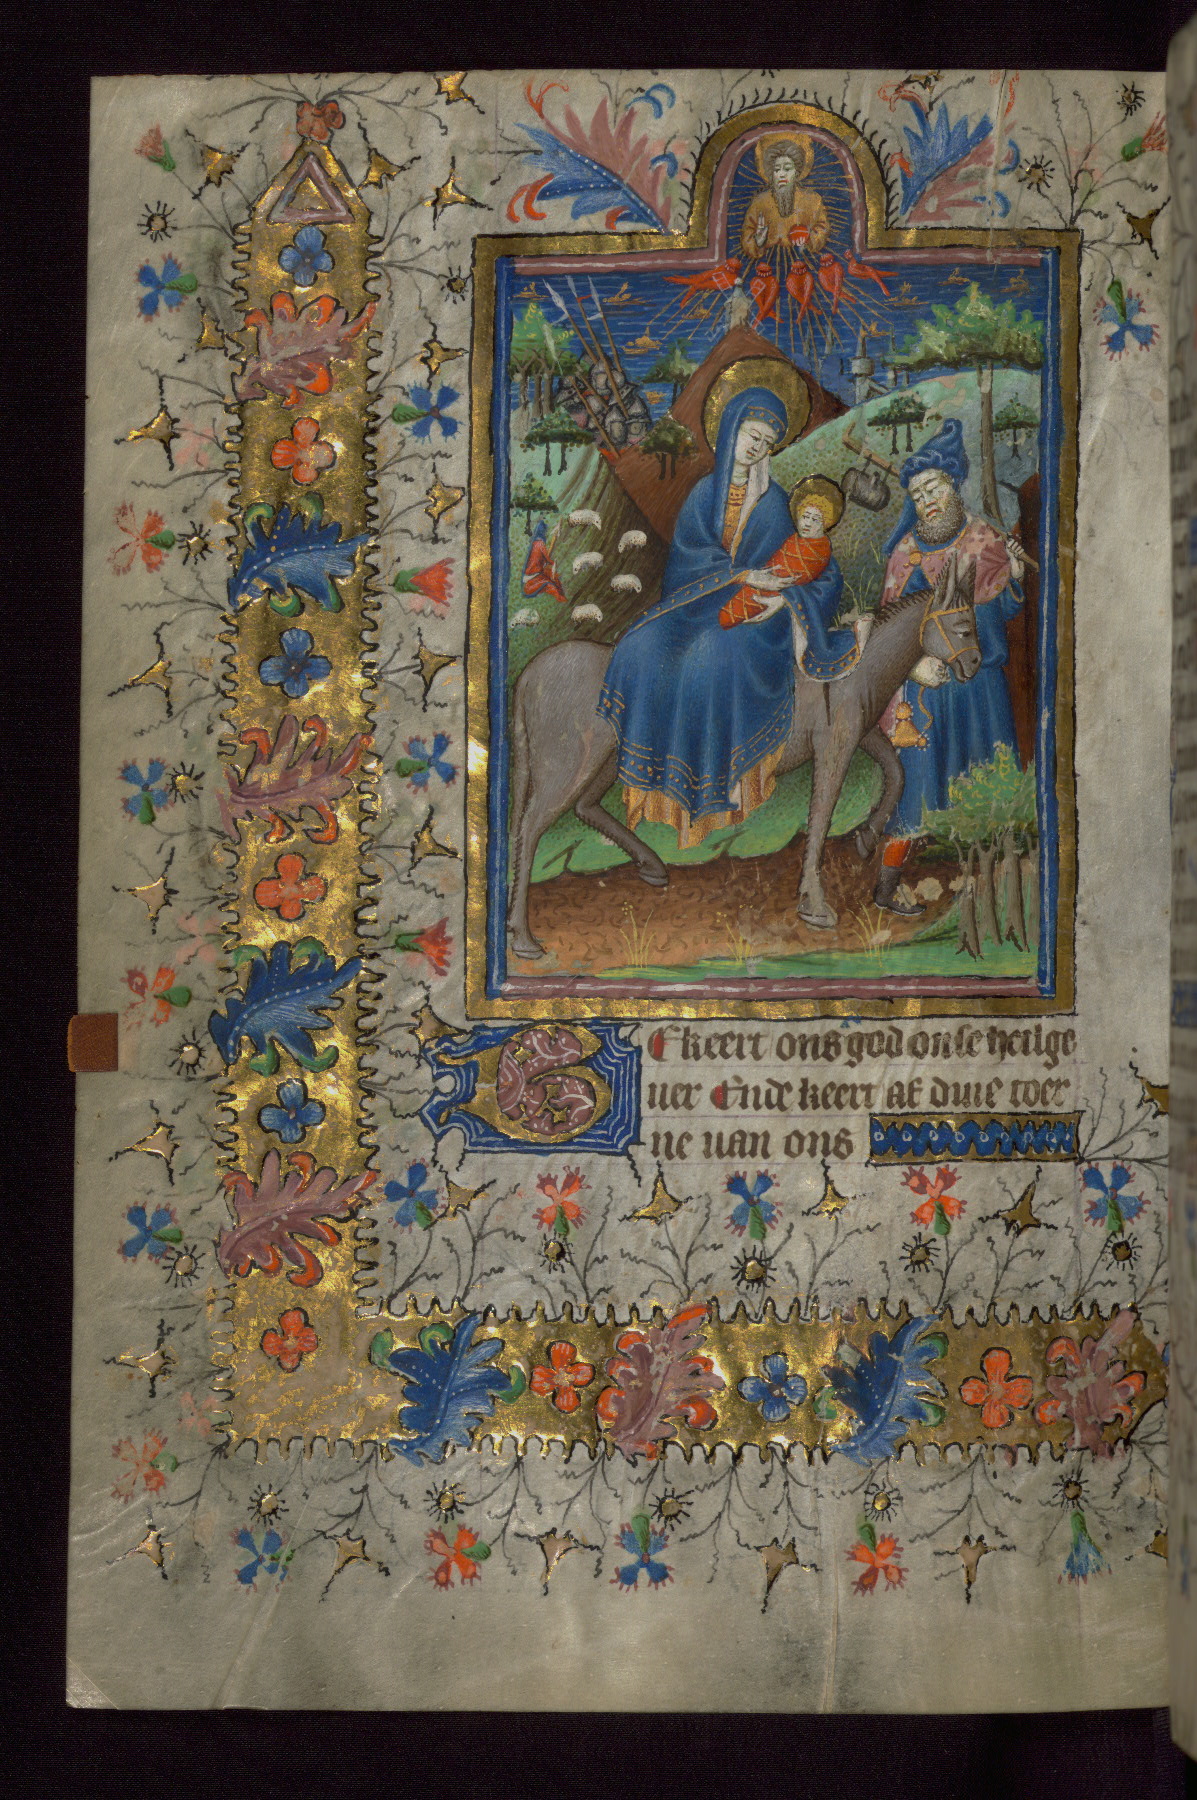 Bekeert ons god onse heilge
uer Ende keert af dine toer
ne uan ons